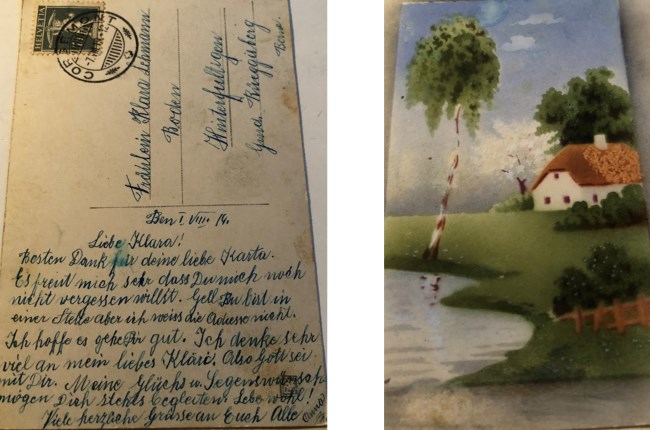 HELVETIA
CORTEMONT
Fräulein Klara Lehmann
Boden
Hinterfultigen
Gund. Rüeggisberg
Bern
Den I VIII. 14.
Liebe Klara!
Besten Dank für deine liebe Karta.
Es freut mich sehr dass Du mich noch
nicht vergessen willst. Gell Du bist in
einer Stelle aber ich weiss die Adresse nicht.
Ich hoffe es gehe Dir gut. Ich denke sehr
viel an mein liebes Kläri. Also Gott sei
mit Dir. Meine Glücks u. Segenswünsch
mögen Dich stehts begleiten. Lebe wohl!
Viele herzliche Grüsse an Euch Alle
Anna